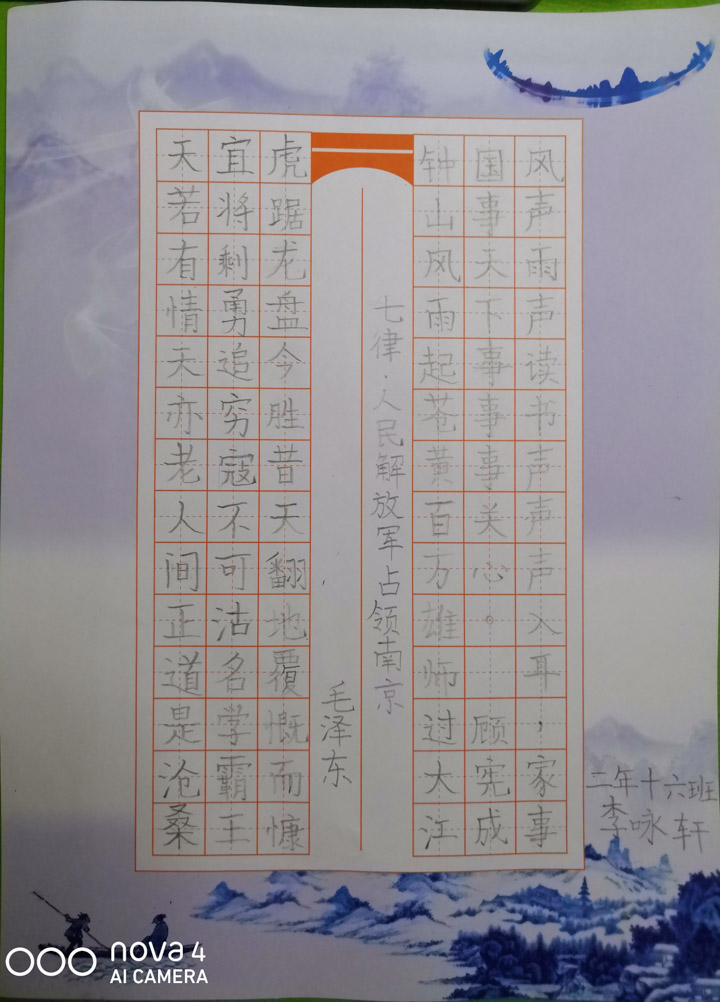 风声雨声读书声声声入耳，家事
国事天下事事事关心。 顾宪成
钟山风雨起苍黄百万雄师过大江
七律·人民解放军占领南京
毛泽东
虎踞龙盘今胜昔天翻地覆慨而慷
宜将剩勇追穷寇不可沽名学霸王
天若有情天亦老人间正道是沧桑
二年十六班
李咏轩
nova 4
AI CAMERA